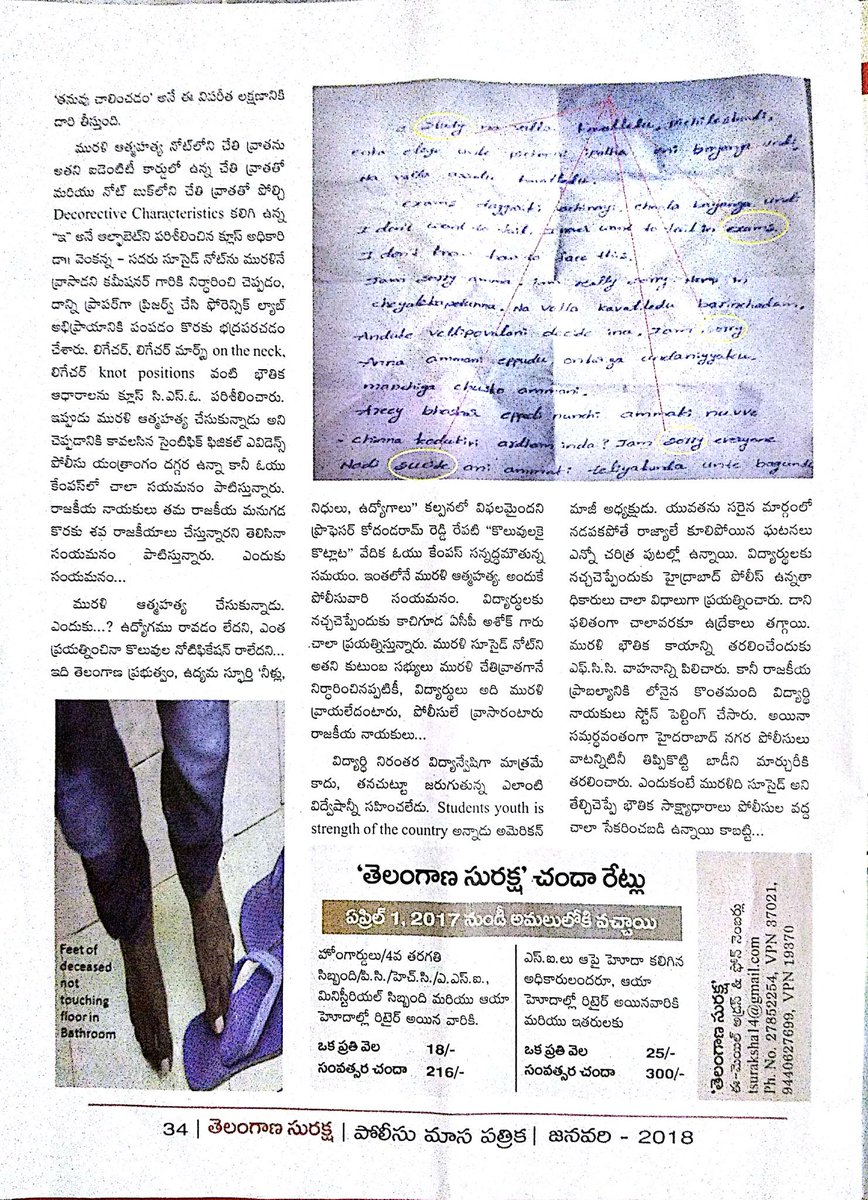 'తనువు చాలించడం' అనే ఈ విపరీత లక్షణానికి
దారి తీస్తుంది.
మురళి ఆత్మహత్య నోట్‌లోని చేతి వ్రాతను
అతని ఐడెంటిటీ కార్డులో ఉన్న చేతి వ్రాతతో
మరియు నోట్ బుక్‌లోని చేతి వ్రాతతో పోల్చి
Decorective Characteristics కలిగి ఉన్న
"ఇ" అనే ఆల్ఫాబెట్‌ని పరిశీలించిన క్లూస్ అధికారి
డా॥ వెంకన్న – సదరు సూసైడ్ నోట్‌ను మురళినే
వ్రాసాడని కమీషనర్ గారికి నిర్ధారించి చెప్పడం,
దాన్ని ప్రాపర్‌గా ప్రిజర్వ్ చేసి ఫోరెన్సిక్ ల్యాబ్
అభిప్రాయానికి పంపడం కొరకు భద్రపరచడం
చేశారు. లిగేచర్, లిగేచర్ మార్క్స్ on the neck,
లిగేచర్ knot positions వంటి భౌతిక
ఆధారాలను క్లూస్ సి.ఎస్.ఓ. పరిశీలించారు.
ఇప్పుడు మురళి ఆత్మహత్య చేసుకున్నాడు అని
చెప్పడానికి కావలసిన సైంటిఫిక్ ఫిజికల్ ఎవిడెన్స్
పోలీసు యంత్రాంగం దగ్గర ఉన్నా కానీ ఓయు
కేంపస్‌లో చాలా సయమనం పాటిస్తున్నారు.
రాజకీయ నాయకులు తమ రాజకీయ మనుగడ
కొరకు శవ రాజకీయాలు చేస్తున్నారని తెలిసినా
సంయమనం పాటిస్తున్నారు. ఎందుకు
సంయమనం...
మురళి ఆత్మహత్య చేసుకున్నాడు.
ఎందుకు...? ఉద్యోగము రావడం లేదని, ఎంత
ప్రయత్నించినా కొలువుల నోటిఫికేషన్ రాలేదని...
ఇది తెలంగాణ ప్రభుత్వం, ఉద్యమ స్ఫూర్తి 'నీళ్లు,
Feet of
deceased
not
touching
floor in
Bathroom
Study
kavatledu.
Na valla
exams
I don't want to fail. I never want to fail in exams.
I don't know how to face this.
Iam sorry amma. Iam really sorry
cheyalekapotunna. Na valla kavatledu
Anduke vellipovalani decide ina. Iam sorry
Anna ammani eppudu
manchiga chusko ammani.
eppati nunchi ammaki nuvve
chinna kodukivi ardham inda? Iam sorry everyone
Nadi suicide ani ammaki teliyakunda unte bagundu
నిధులు, ఉద్యోగాలు" కల్పనలో విఫలమైందని
ప్రొఫెసర్ కోదండరామ్ రెడ్డి రేపటి "కొలువులకై
కొట్లాట" వేదిక ఓయు కేంపస్ సన్నద్ధమౌతున్న
సమయం. ఇంతలోనే మురళి ఆత్మహత్య. అందుకే
పోలీసువారి సంయమనం. విద్యార్థులకు
నచ్చచెప్పేందుకు కాచిగూడ ఏసీపీ అశోక్ గారు
చాలా ప్రయత్నిస్తున్నారు. మురళి సూసైడ్ నోట్‌ని
అతని కుటుంబ సభ్యులు మురళి చేతివ్రాతగానే
నిర్ధారించినప్పటికీ, విద్యార్థులు అది మురళి
వ్రాయలేదంటారు, పోలీసులే వ్రాసారంటారు
రాజకీయ నాయకులు...
విద్యార్థి నిరంతర విద్యాన్వేషిగా మాత్రమే
కాదు, తనచుట్టూ జరుగుతున్న ఎలాంటి
విద్వేషాన్నీ సహించలేదు. Students youth is
strength of the country అన్నాడు అమెరికన్
మాజీ అధ్యక్షుడు. యువతను సరైన మార్గంలో
నడపకపోతే రాజ్యాలే కూలిపోయిన ఘటనలు
ఎన్నో చరిత్ర పుటల్లో ఉన్నాయి. విద్యార్థులకు
నచ్చచెప్పేందుకు హైద్రాబాద్ పోలీస్ ఉన్నతా
ధికారులు చాలా విధాలుగా ప్రయత్నించారు. దాని
ఫలితంగా చాలావరకూ ఉద్రేకాలు తగ్గాయి.
మురళి భౌతిక కాయాన్ని తరలించేందుకు
ఎఫ్.సి.సి వాహనాన్ని పిలిచారు. కానీ రాజకీయ
ప్రాబల్యానికి లోనైన కొంతమంది విద్యార్థి
నాయకులు స్టోన్ పెల్టింగ్ చేసారు. అయినా
సమర్థవంతంగా హైదరాబాద్ నగర పోలీసులు
వాటన్నిటినీ తిప్పికొట్టి బాడీని మార్చురీకి
తరలించారు. ఎందుకంటే మురళిది సూసైడ్ అని
తేల్చిచెప్పే భౌతిక సాక్ష్యాధారాలు పోలీసుల వద్ద
చాలా సేకరించబడి ఉన్నాయి కాబట్టి...
'తెలంగాణ సురక్ష' చందా రేట్లు
ఏప్రిల్ 1, 2017 నుండీ అమలులోకి వచ్చాయి
హోంగార్డులు/4వ తరగతి
సిబ్బంది/పి.సి./హెచ్.సి./ఎ.ఎస్.ఐ.,
మినిస్టీరియల్ సిబ్బంది మరియు ఆయా
హెూదాల్లో రిటైర్ అయిన వారికి.
ఒక ప్రతి వెల 18/-
సంవత్సర చందా 216/-
ఎస్.ఐ.లు ఆపై హెూదా కలిగిన
అధికారులందరూ, ఆయా
హెూదాల్లో రిటైర్ అయినవారికి
మరియు ఇతరులకు
ఒక ప్రతి వెల 25/-
సంవత్సర చందా 300/-
'తెలంగాణ సురక్ష'
ఈ-మెయిల్ అడ్రస్ & ఫోన్ నెంబర్లు
tsuraksha14@gmail.com
Ph. No. 27852254, VPN 37021,
9440627699, VPN 19370
34 | తెలంగాణ సురక్ష | పోలీసు మాస పత్రిక | జనవరి - 2018